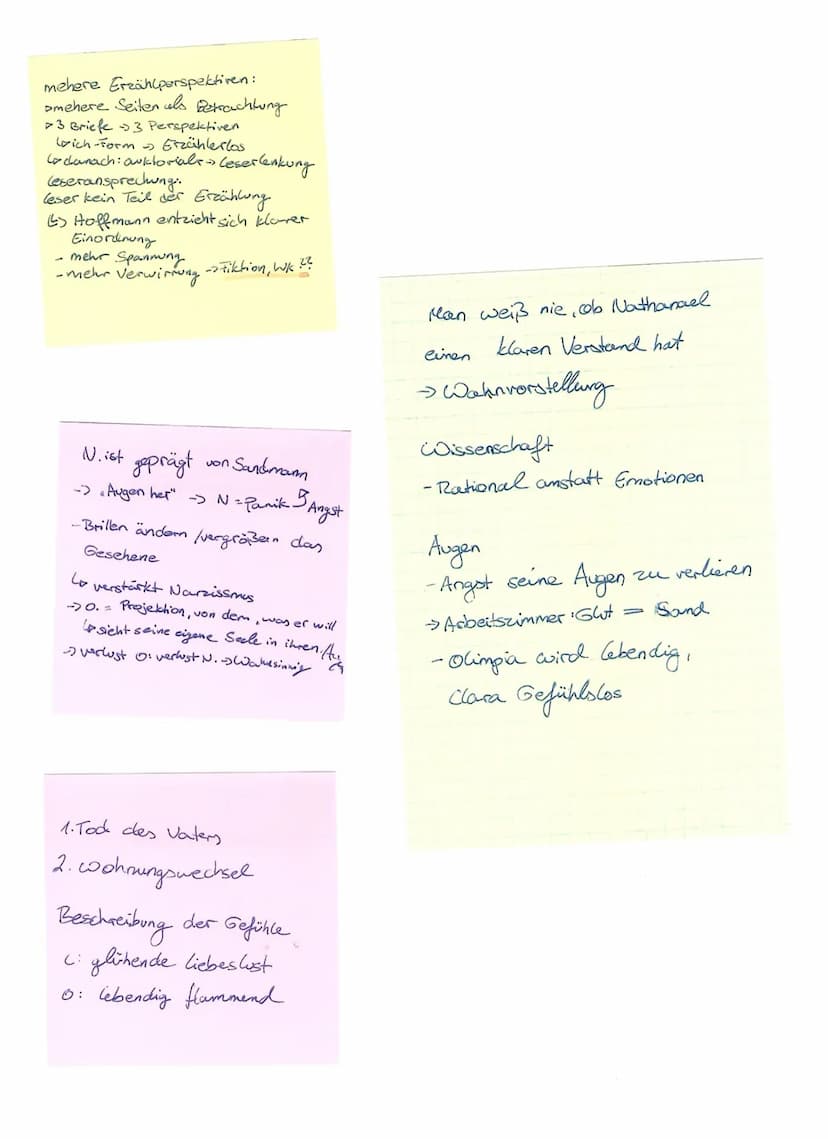 mehere Erzählperspektiven:
▹mehere Seiten als Betrachtung
▹ 3 Briefe → 3 Perspektiven
↳ich-Form → Erzählerlos
↳danach: auktorial → Leserlenkung
Leseransprechung:
Leser kein Teil der Erzählung
(↳) Hoffmann entzieht sich klarer
Einordnung
- mehr Spannung
- mehr Verwirrung → Fiktion, WK ??
N. ist geprägt von Sandmann
→ „Augen her" → N = Panik Angst
- Brillen ändern / vergrößern das
Gesehene
↳ verstärkt Narzissmus
→ O. = Projektion, von dem, was er will
↳ sieht seine eigene Seele in ihren
→ verlust O: verlust N. → Wahnsinnig
1. Tod des Vaters
2. Wohnungswechsel
Beschreibung der Gefühle
C: glühende Liebeslust
O: lebendig flammend
Man weiß nie, ob Nathanael
einen klaren Verstand hat
→ Wahnvorstellung
Wissenschaft
- Rational anstatt Emotionen
Augen
- Angst seine Augen zu verlieren
→ Arbeitszimmer: Glut = Sand
- Olimpia wird lebendig,
Clara Gefühlslos